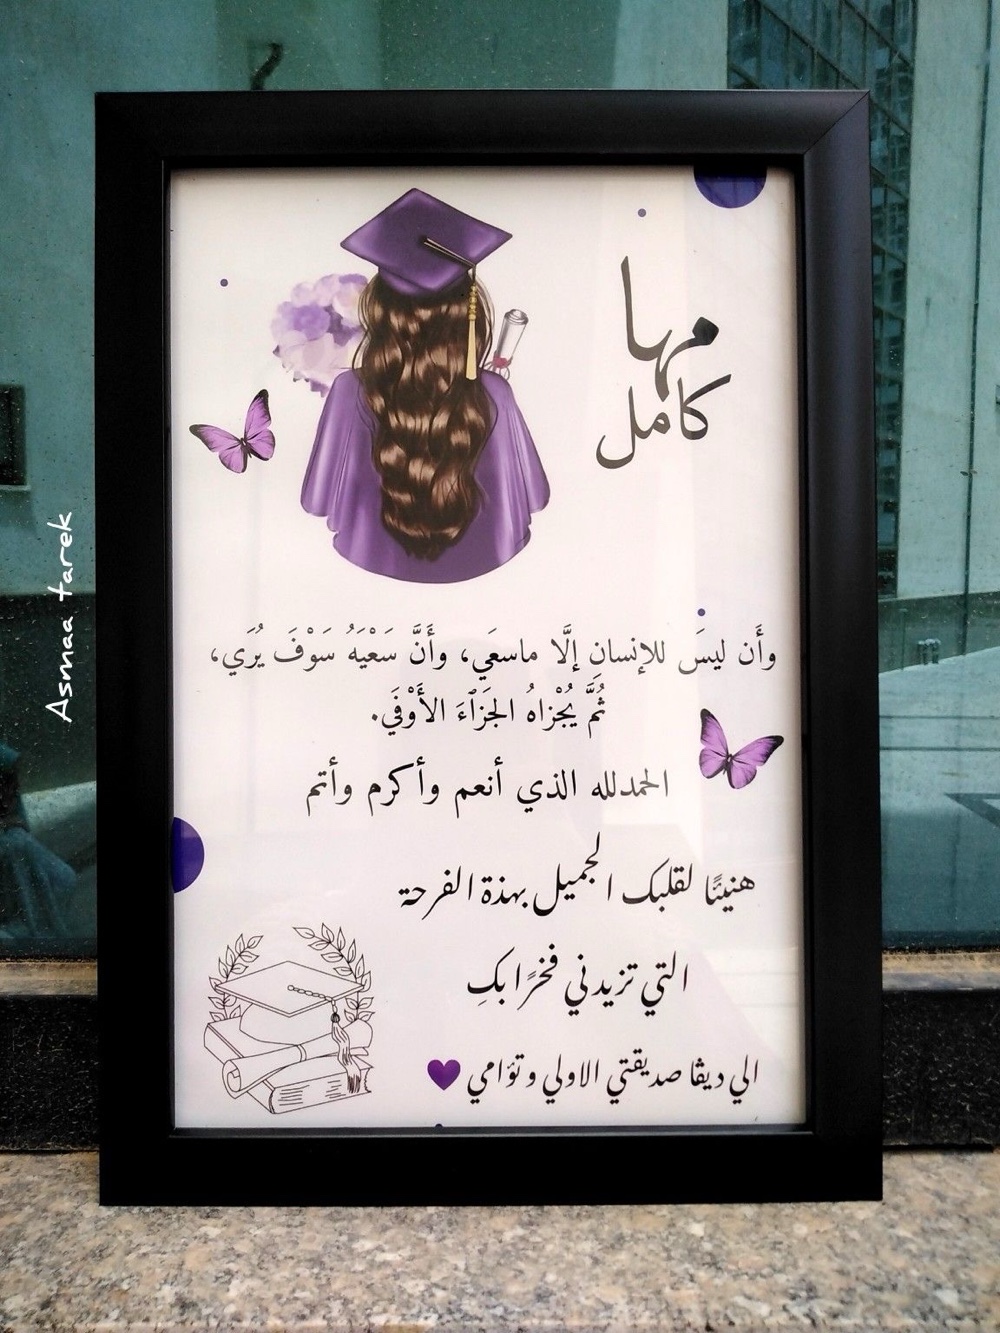 مها
كامل
وأَن ليسَ للإنسانِ إلَّا ماسعَي، وأَنَّ سَعْيَهُ سَوْفَ يُرَي،
ثُمَّ يُجْزاهُ الجَزَآءَ الأَوْفَي.
الحمدلله الذي أنعم وأكرم وأتم
هنيئًا لقلبك الجميل بهذة الفرحة
التي تزيدني فخرًا بكِ
الي ديڤا صديقتي الاولي وتؤامي
Asmaa tarek